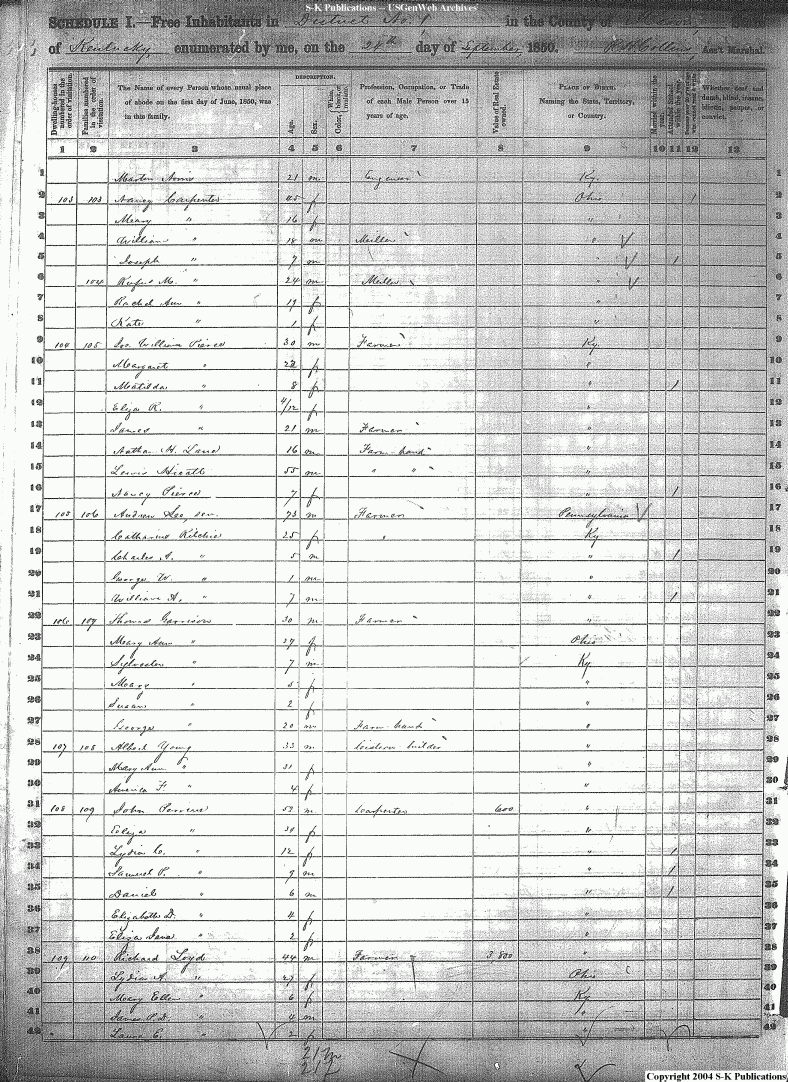 S-K Publications -- USGenWeb Archives
SCHEDULE I.—Free Inhabitants in District No. 1 in the County of
of Kentucky, enumerated by me, on the 24th day of September, 1850. Ass't Marshal.
Dwelling-houses numbered in the order of visitation.
Families numbered in the order of visitation.
The Name of every Person whose usual place of abode on the first day of June, 1850, was in this family.
DESCRIPTION.
Age.
Sex.
Color, White, black, or mulatto.
Profession, Occupation, or Trade of each Male Person over 15 years of age.
Value of Real Estate owned.
PLACE OF BIRTH. Naming the State, Territory, or Country.
Married within the year.
Attended School within the year.
Whether deaf and dumb, blind, insane, idiotic, pauper, or convict.
1 2 3 4 5 6 7 8 9 10 11 12 13
1 21 m Ky. 1
2 103 103 Nancy Carpenter 45 f Ohio 1 2
3 Meary " 16 f " 3
4 William " 18 m " 4
5 Joseph " 7 m " 1 5
6 104 Rufus M. " 24 m Miller " 6
7 Rachel Ann " 19 f " 7
8 Kate " 1 f " 8
9 104 105 William Pierce 30 m Farmer Ky. 9
10 Margaret " 22 f " 10
11 Matilda " 8 f " 1 11
12 Eliza R. " 4/12 f " 12
13 James " 21 m Farmer " 13
14 Nathan H. Lane 16 m Farm-hand " 14
15 Lewis 55 m " " " 15
16 Nancy Pierce 7 f " 1 16
17 105 106 Andrew sen. 73 m Farmer Pennsylvania 17
18 Catharine Ritchie 25 f " Ky 18
19 Charles A. " 5 m " 1 19
20 George W. " 1 m " 20
21 William A. " 7 m " 1 21
22 106 107 Thomas Garrison 30 m Farmer " 22
23 Mary Ann " 27 f Ohio 23
24 Sylvester " 7 m Ky. 24
25 Meary " 5 f " 25
26 Susan " 2 f " 26
27 George " 20 m Farm-hand " 27
28 107 108 Albert Young 33 m Cistern-builder " 28
29 Mary Ann " 31 f " 29
30 America F. " 4 f " 30
31 108 109 John 53 m Carpenter 600 " 31
32 Eliza " f " 32
33 Lydia C. " 12 f " 1 33
34 Samuel P. " 9 m " 1 34
35 Daniel " 6 m " 1 35
36 Elizabeth D. " 4 f " 36
37 Eliza Jane " 2 f " 37
38 109 110 Richard Loyd 44 m Farmer 3,800 " 38
39 Lydia A. " 27 f Ohio 39
40 Meary Ellen " 6 f Ky 40
41 James P. D. " 4 m " 41
42 " Laura E. " 2 f " 42
Copyright 2004 S-K Publications